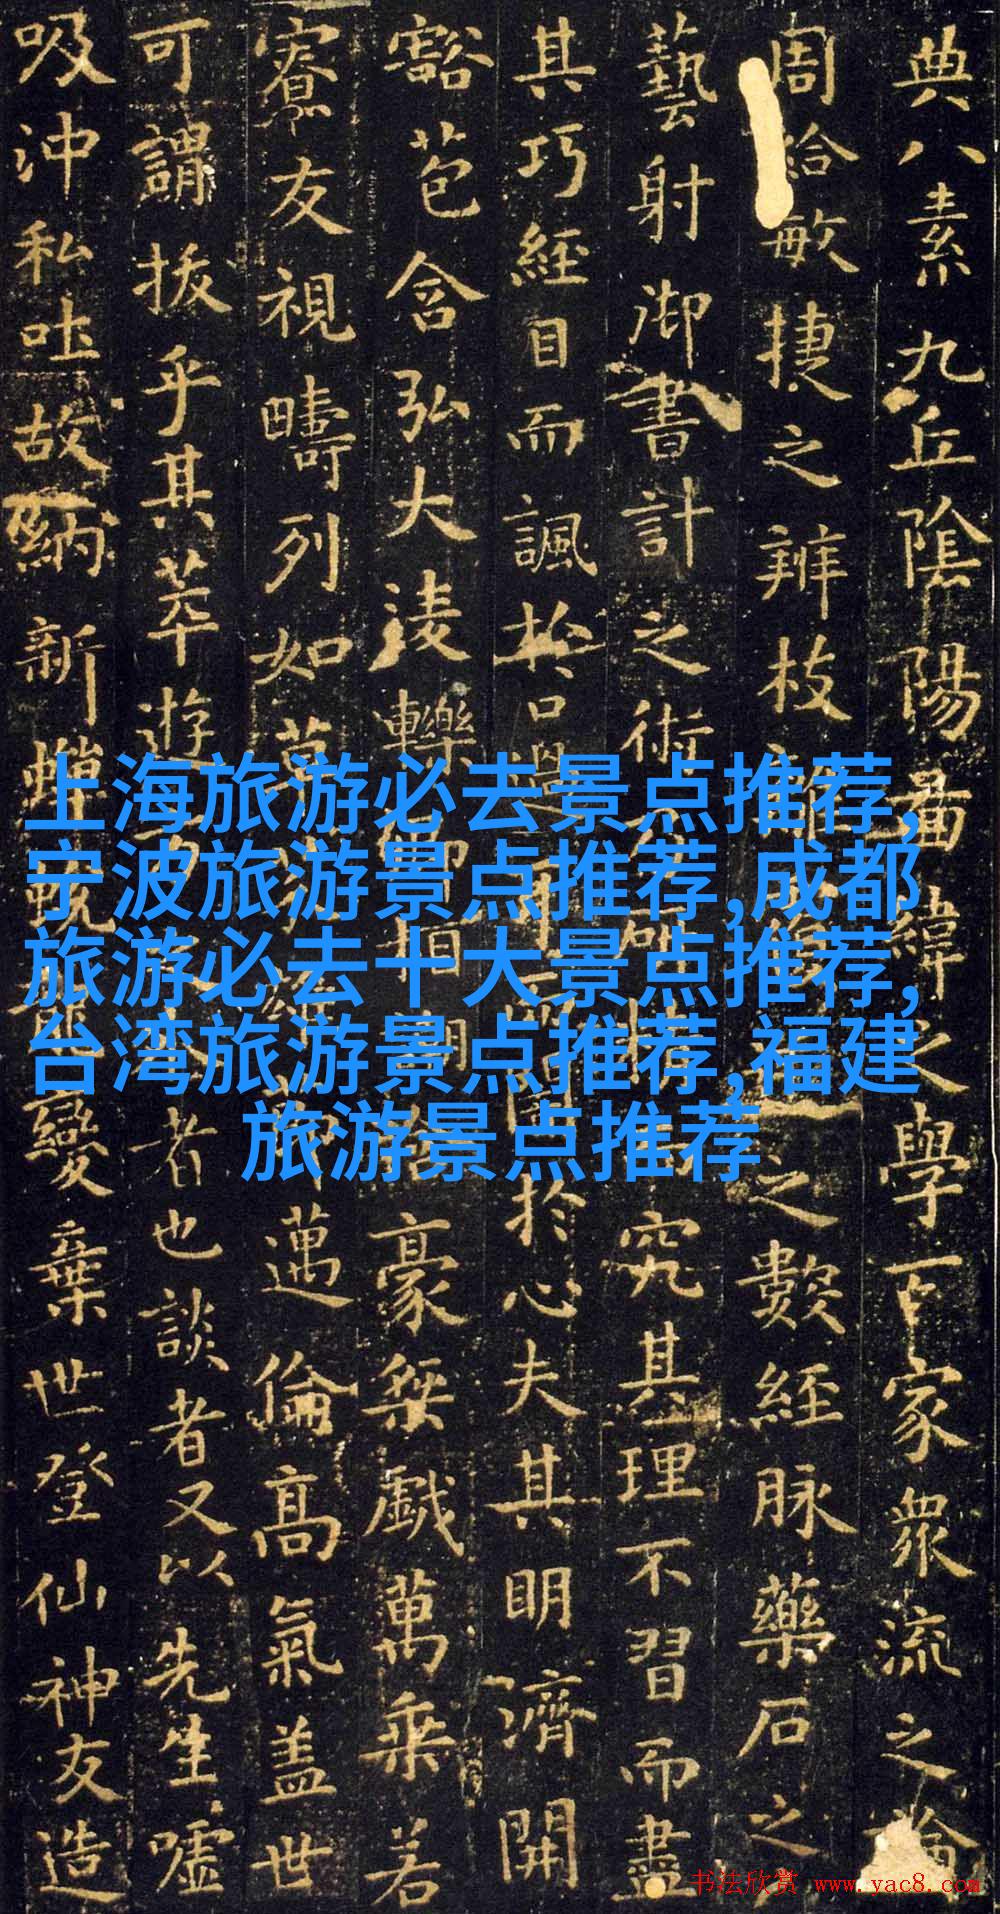 典八素九丘陰陽啚緯之學百家衆流之論
周給敏捷之辨枝之數經脉藥石之
藝射御書計之術究其理不習而盡
其巧經目而諷於口於心夫其明濟開
豁苞含弘大淩轢豪桀戲萬乘若
寮友視疇列如草邁倫高氣盖世
可謂拔乎其萃遊者也談者又以先生噓
吸沖和吐故納新蟬變棄世登仙神友造
上海旅游必去景点推荐,
宁波旅游景点推荐,成都
旅游必去十大景点推荐,
台湾旅游景点推荐,福建
旅游景点推荐
书法欣赏 www.yac8.com